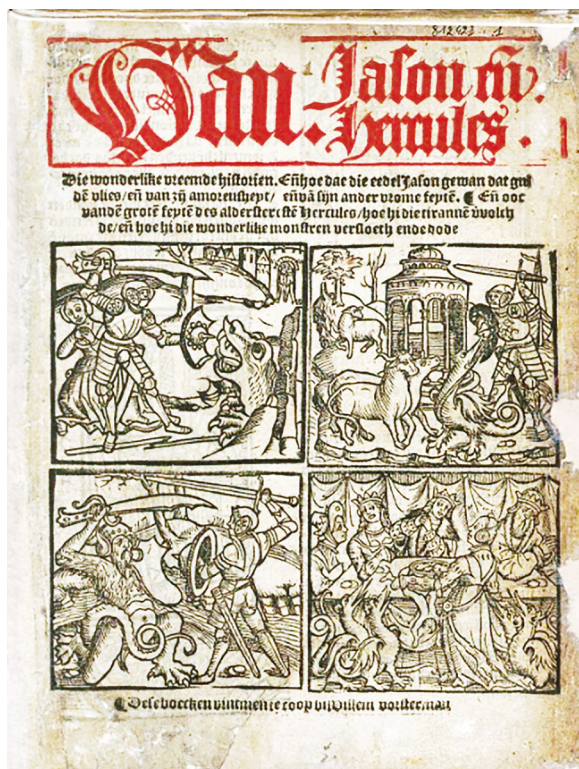 812623 1
Van. Jason eñ.
Hercules.
Die wonderlike vreemde historien. Eñ hoe dat die eedel Jason gewan dat guldē vlies/ eñ van zÿ amoreusheyt/ eñ vā sijn ander vrome feytē. ¶ Eñ ooc
vandē grotē feytē des alderstercstē Hercules/ hoe hi die tirannē v̄volch
de/ eñ hoe hi die wonderlike monstren versloech ende dode
¶ Dese boecken vintmen te coop bi Willem vorsterman